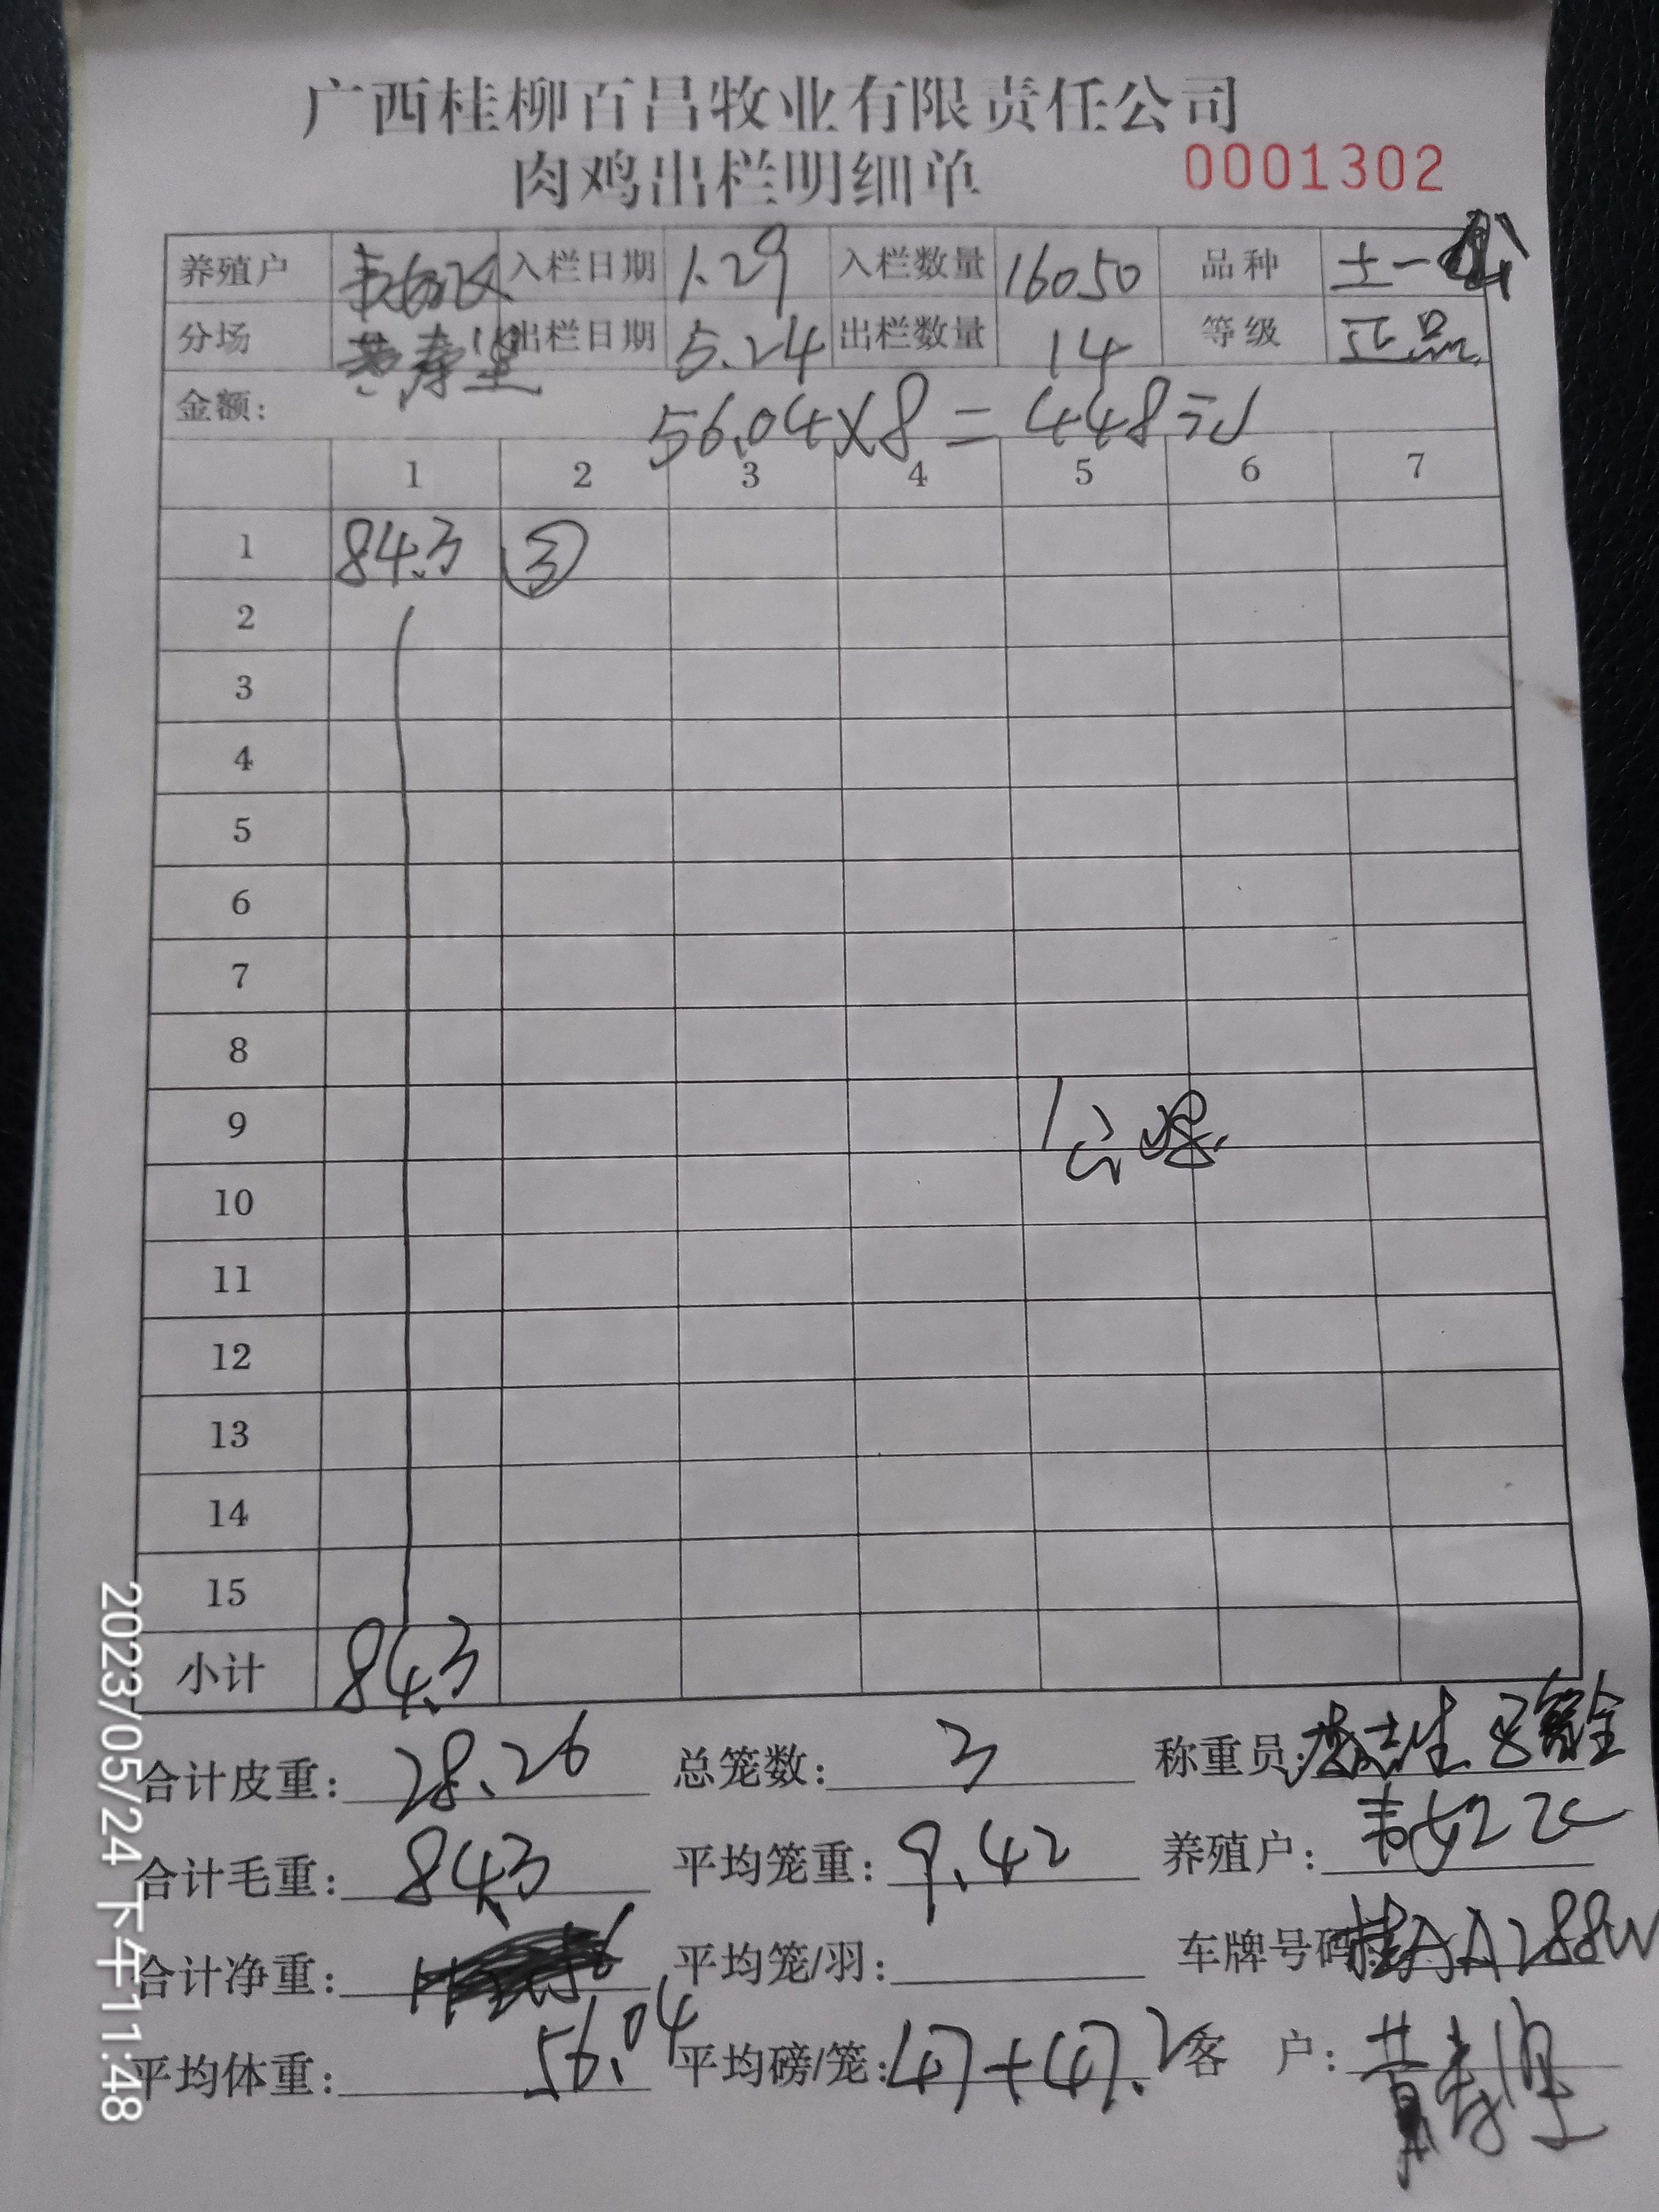 广西桂柳百昌牧业有限责任公司
肉鸡出栏明细单 0001302
养殖户 入栏日期 1.29 入栏数量 16050 品种 土一
分场 出栏日期 5.24 出栏数量 14 等级 正品
金额: 56.04×8=448元
1 2 3 4 5 6 7
1 84.3 ③
2
3
4
5
6
7
8
9
10
11
12
13
14
15
小计 84.3
合计皮重: 28.26 总笼数: 3 称重员:
合计毛重: 84.3 平均笼重: 9.42 养殖户:
合计净重: 平均笼/羽: 车牌号码: 桂AA288W
平均体重: 56.04 平均磅/笼: 47+47.2 客 户: 黄寿堡
2023/05/24 下午11:48